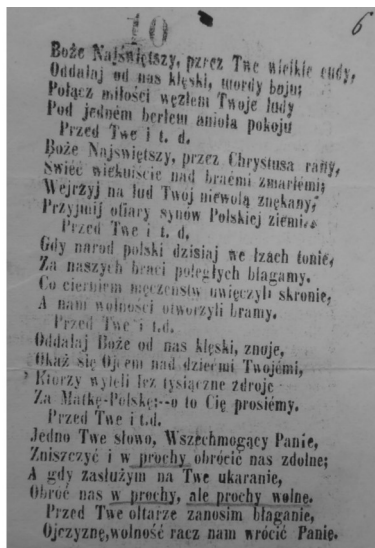 10
6
Boże Najświętszy, przez Twe wielkie cudy,
Oddalaj od nas klęski, mordy boju;
Połącz miłości węzłem Twoje ludy
Pod jedném berłem anioła pokoju
Przed Twe i t. d.
Boże Najswiętszy, przez Chrystusa rany,
Swieć wiekuiście nad braćmi zmarłémi;
Wejrzyj na lud Twoj niewolą znękany,
Przyjmij ofiary synów Polskiej ziemi.
Przed Twe i t. d.
Gdy narod polski dzisiaj we łzach tonie,
Za naszych braci poległych błagamy.
Co cierniem męczeństw uwięczyli skronie,
A nam wolności otworzyli bramy.
Przed Twe i t.d.
Oddalaj Boże od nas klęski, znoje,
Okaż się Ojcem nad dziećmi Twojémi,
Ktorzy wyleli łez tysiączne zdroje
Za Matkę-Polskę;--o to Cię prosiémy.
Przed Twe i t.d.
Jedno Twe słowo, Wszechmogący Panie,
Zniszczyć i w prochy obrócić nas zdolne;
A gdy zasłużym na Twe ukaranie,
Obroć nas w prochy, ale prochy wolne.
Przed Twe ołtarze zanosim błaganie,
Ojczyznę,wolność racz nam wrócić Panie.